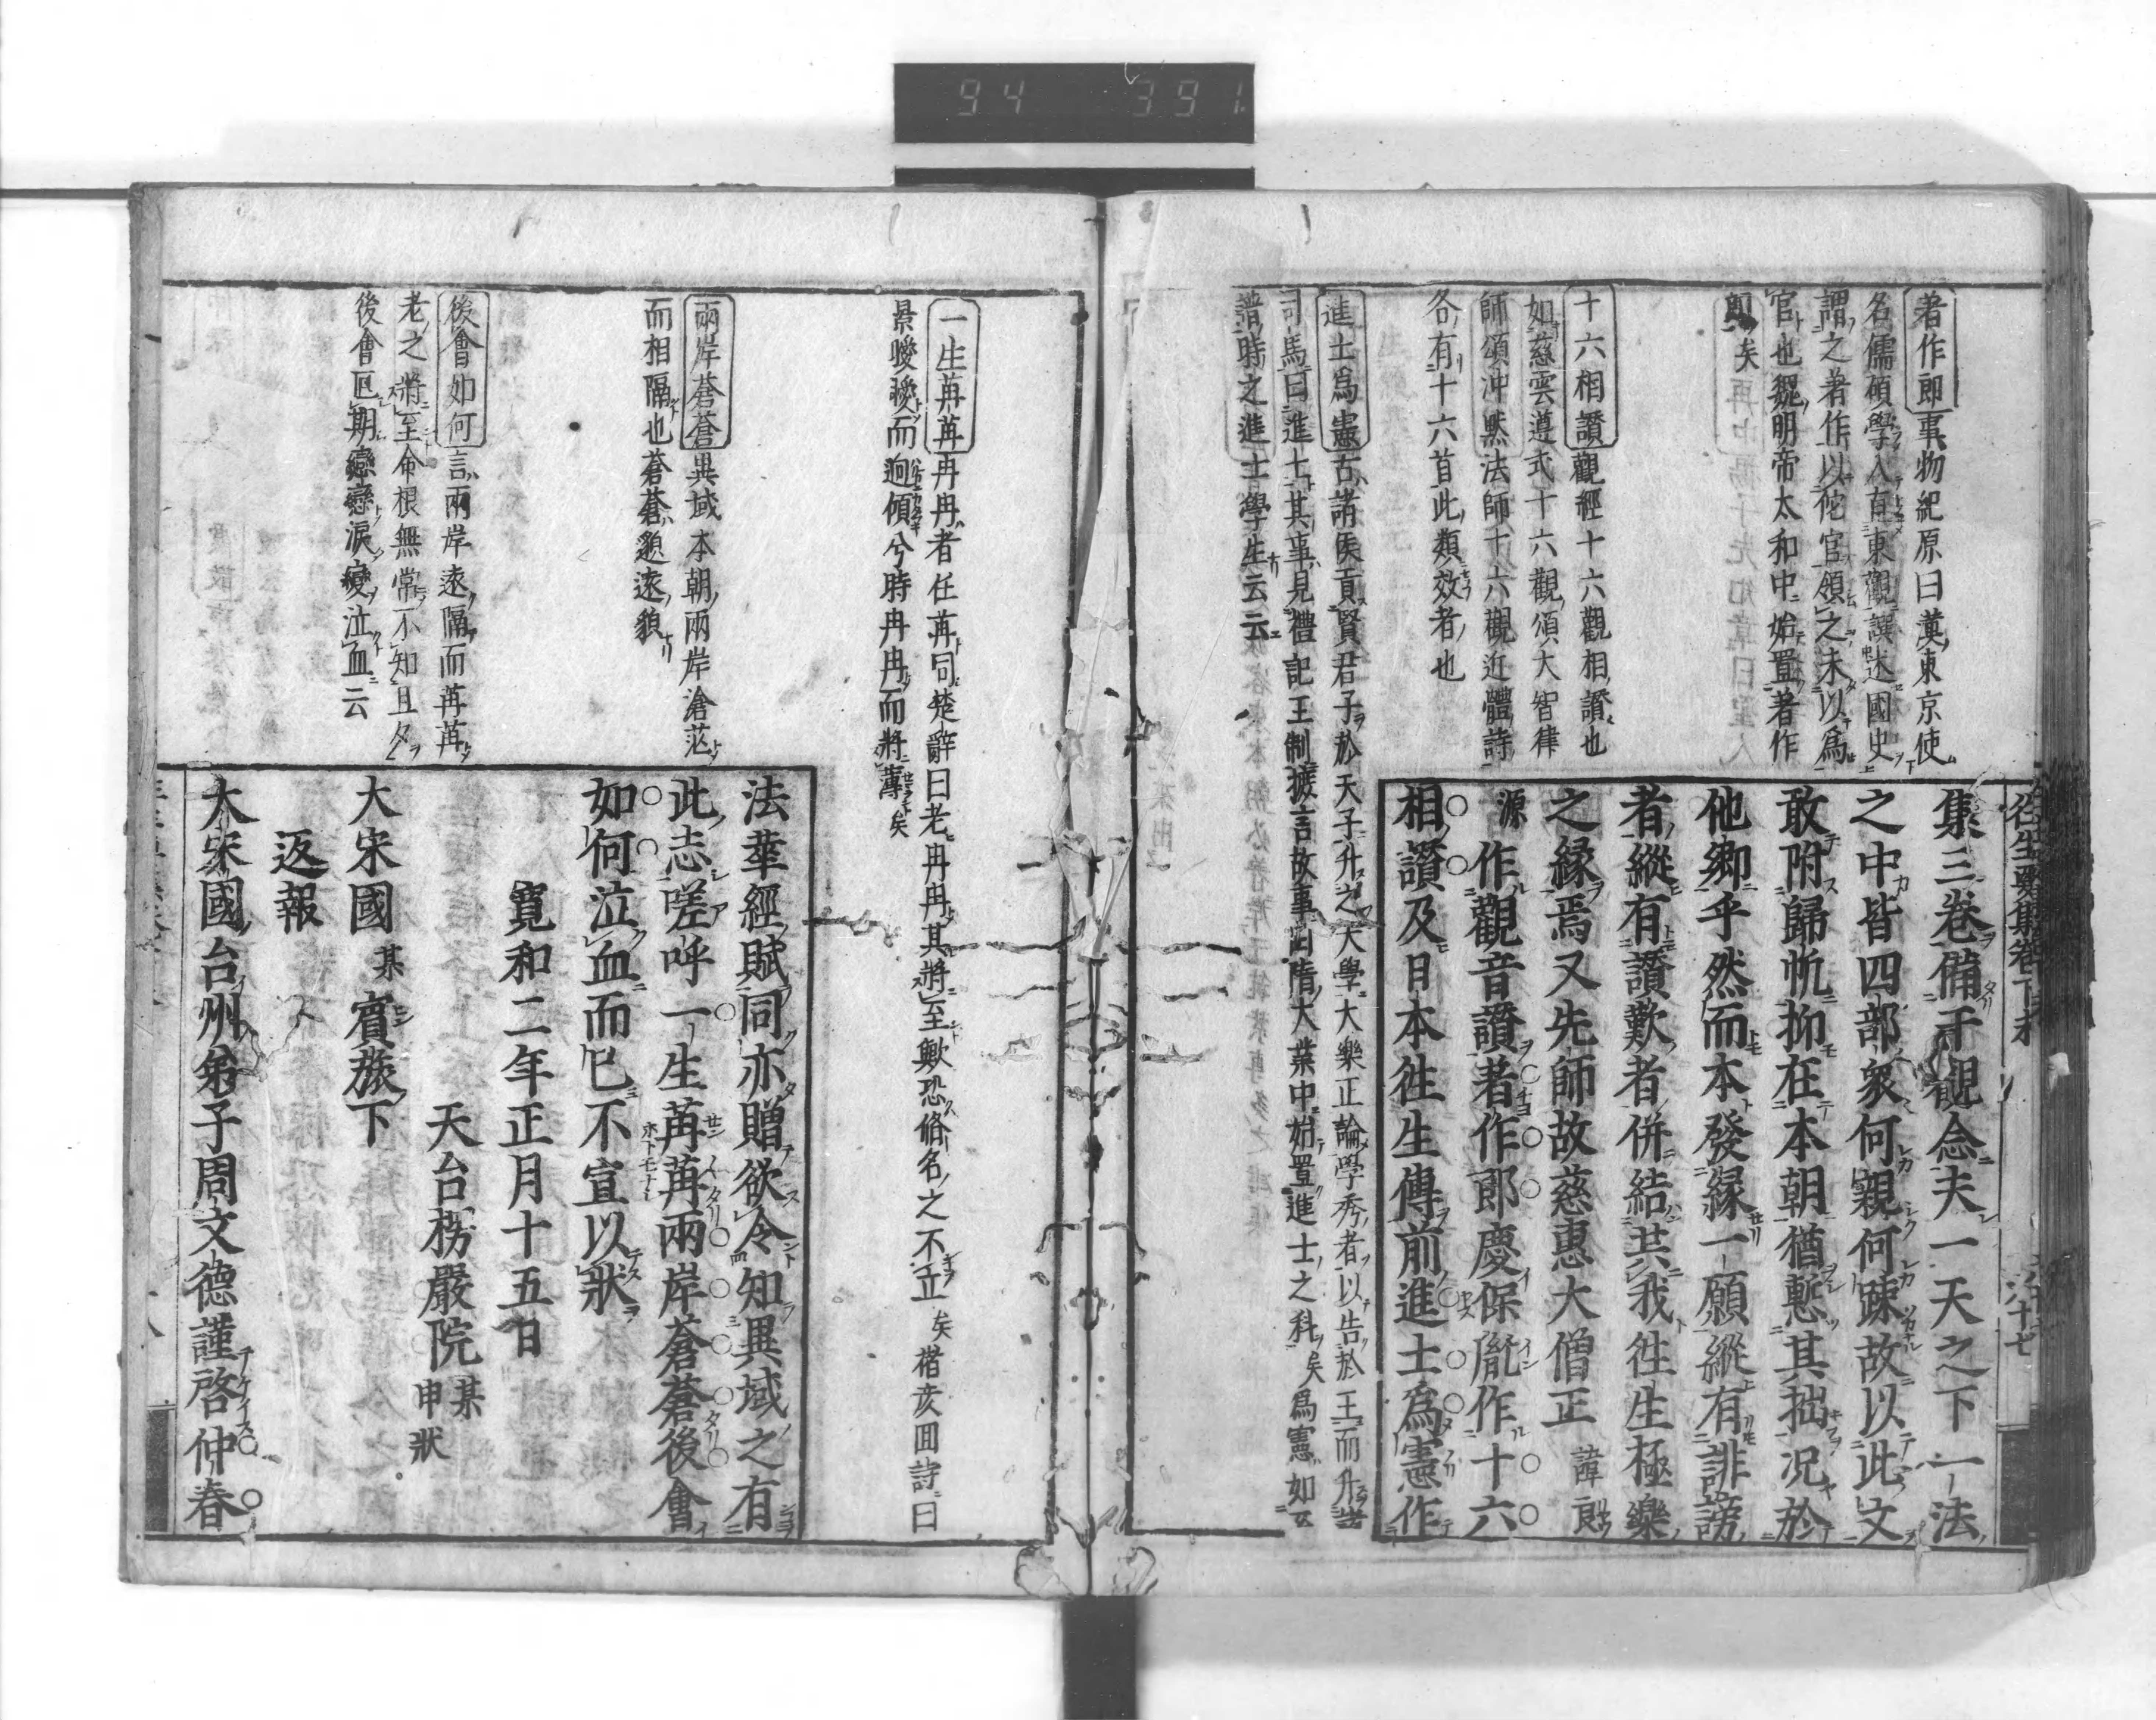 94 391
徃生要集卷下末
六十七
著作郎事物紀原曰漢東京使
名儒碩學入直東觀譔述國史
謂之著作以佗官領之未以爲
官也魏明帝太和中始置著作
郎矣
十六相讚觀經十六觀相讚也
如慈雲遵式十六觀頌大智律
師頌冲黙法師十六觀近體詩
各有十六首此類效者也
進士爲憲古諸侯貢賢君子於天子升之大學大樂正論學秀者以告於王而升諸
司馬曰進士其事見禮記王制摭言故事曰隋大業中始置進士之科矣爲憲如云
譜時之進士學生云云
集三卷備于觀念夫一天之下一法
之中皆四部衆何親何踈故以此文
敢附歸忻抑在本朝猶慙其拙况於
他鄉乎然而本發緣一願縱有誹謗
者縱有讃歎者併結共我徃生極樂
之緣焉又先師故慈惠大僧正諱良
源作觀音讃著作郎慶保胤作十六
相讃及日本徃生傳前進士爲憲作
一生苒苒冉冉者任苒同楚辭曰老冉冉其將至歟恐脩名之不立矣楷亥囬詩曰
景曖曖而𨒪傾兮時冉冉而將薄矣
兩岸蒼蒼異域本朝兩岸滄茫
而相隔也蒼蒼懸遠貌
後會如何言兩岸遠隔而苒苒
老之將至命根無常不知且夕
後會叵期戀戀淚變泣血云
法華經賦同亦贈欲令知異域之有
此志嗟呼一生苒苒兩岸蒼蒼後會
如何泣血而已不宣以狀
寛和二年正月十五日
天台楞嚴院某申狀
大宋國某賓旅下
返報
大宋國台州弟子周文德謹啓仲春